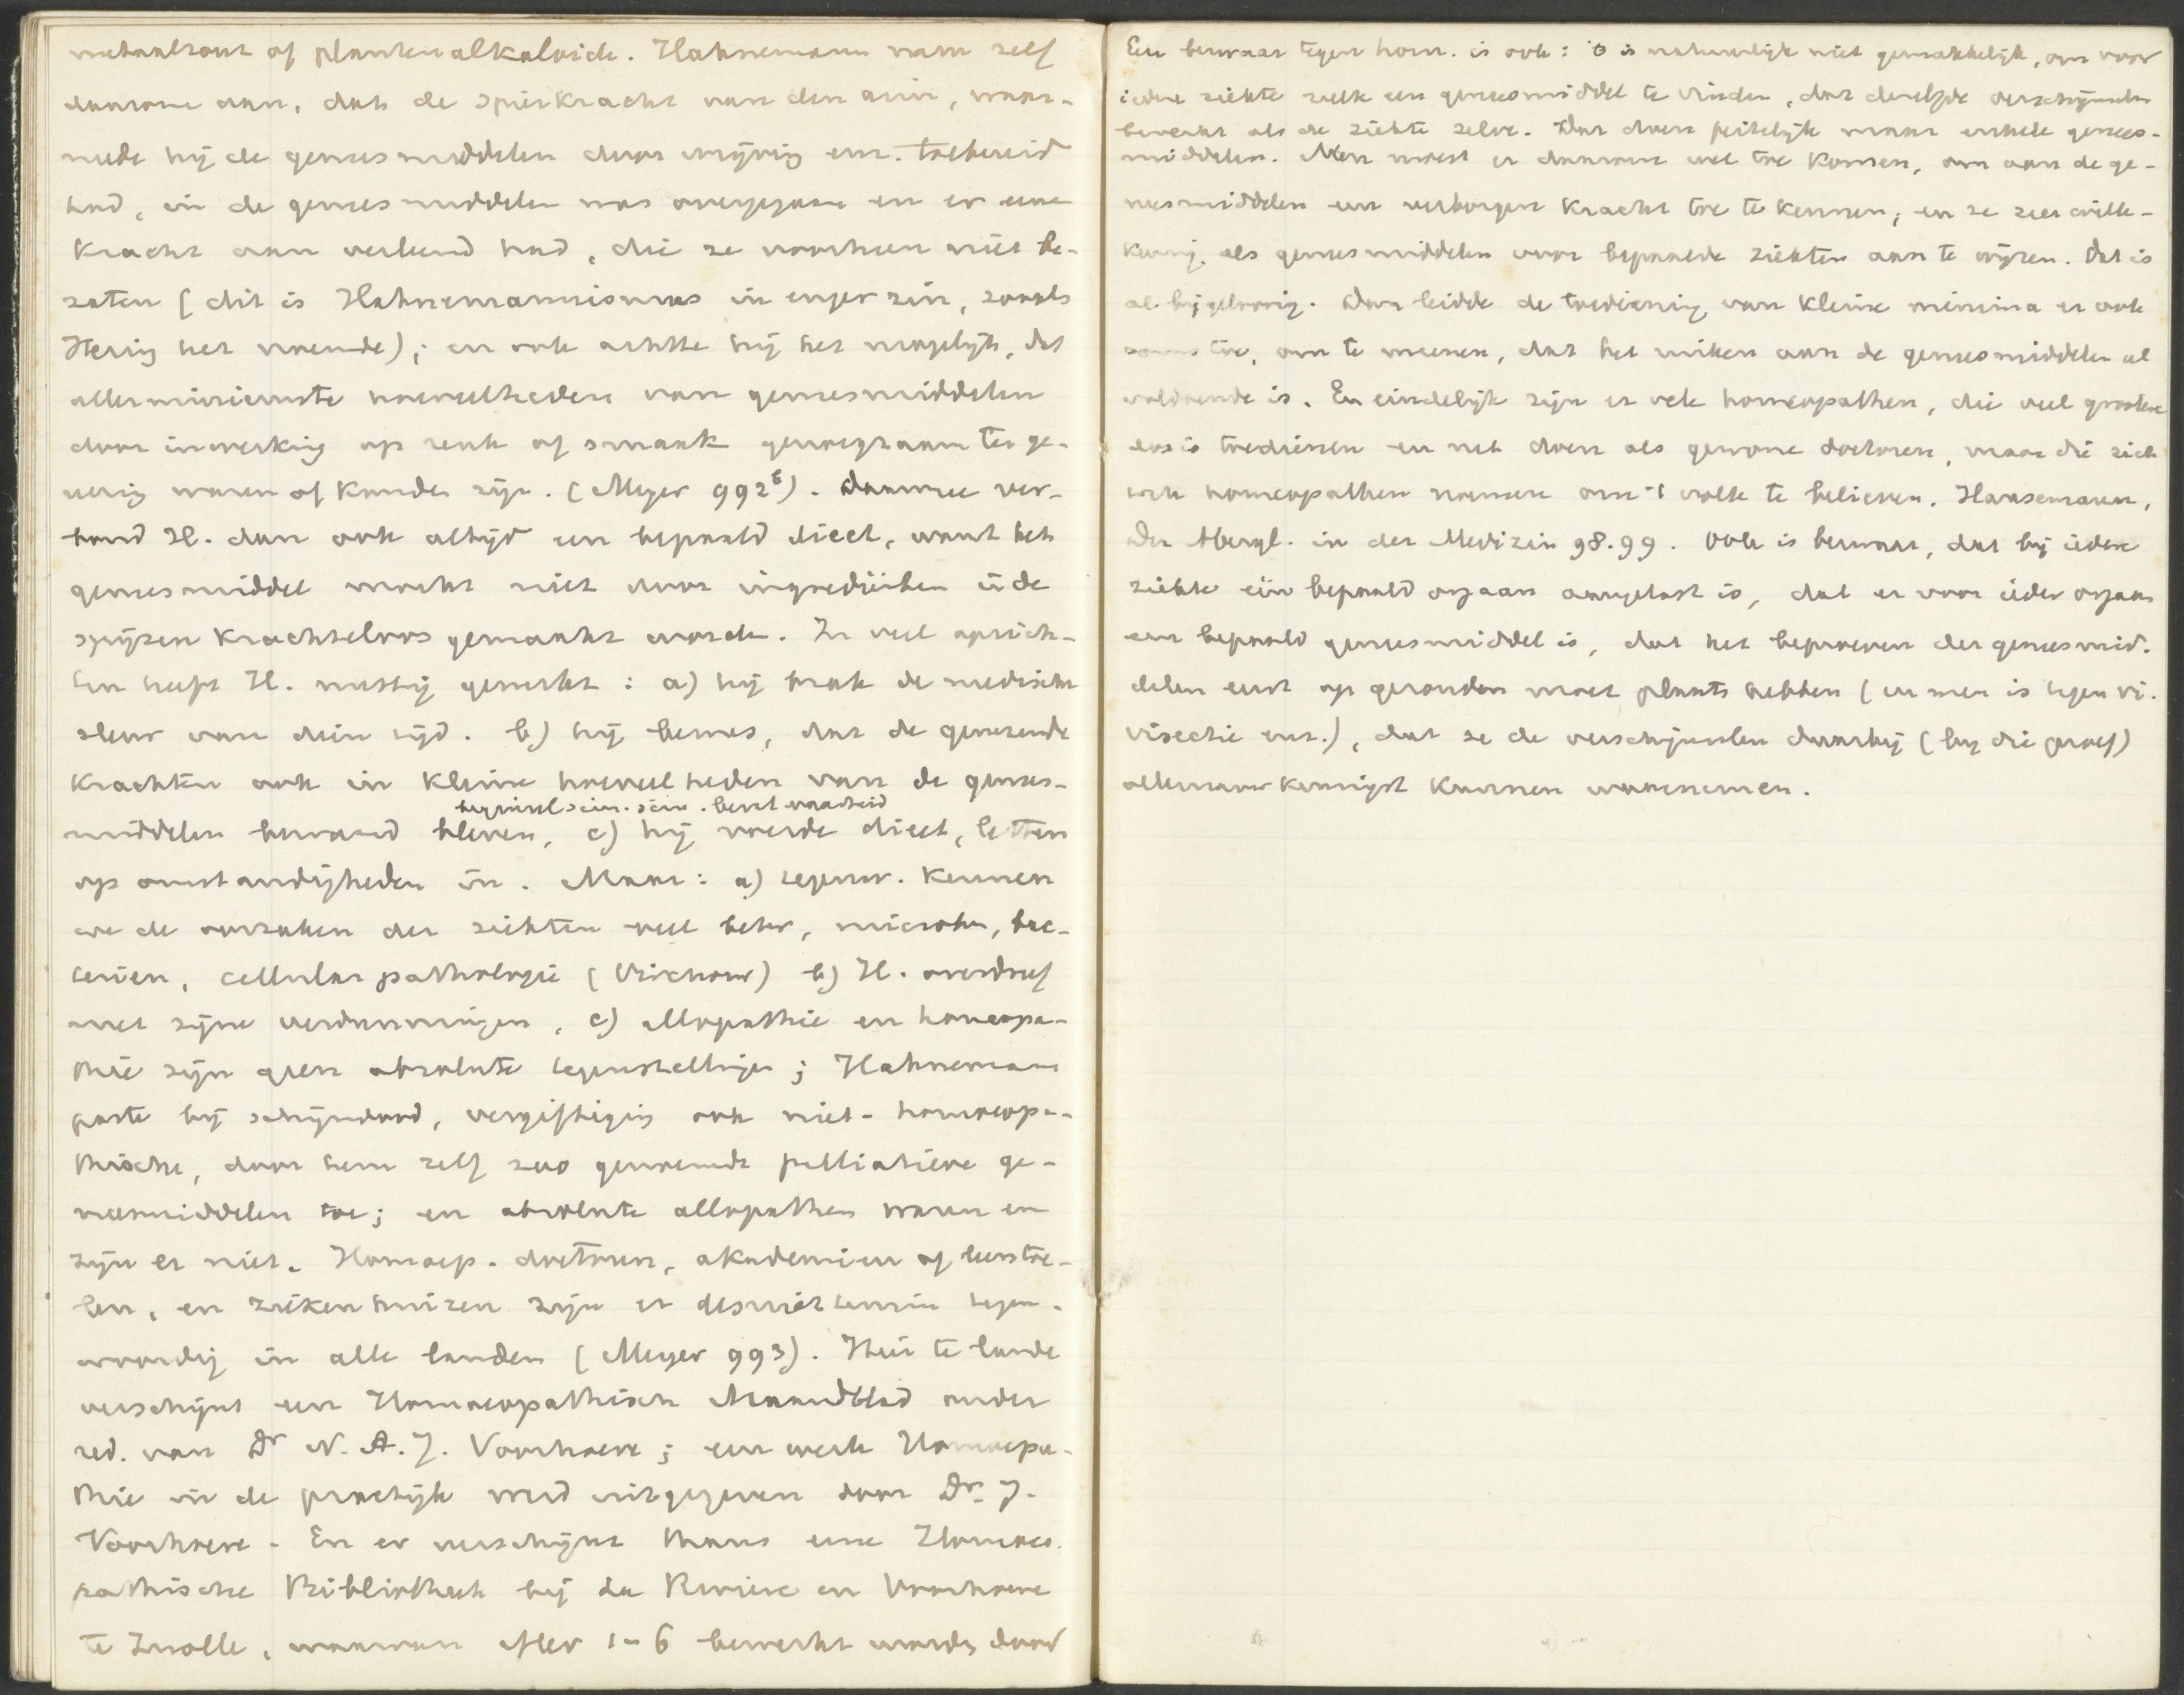 metaalzout of plantenalkaloide. Hahnemann nam zelf
daarom aan, dat de spierkracht van den arm, waar-
mede hij de geneesmiddelen door wrijving enz. toebereid
had, in de geneesmiddelen was overgegaan en er eene
kracht aan verleend had, die ze voorheen niet be-
zaten (dit is Hahnemannismus in enger zin, zooals
Hering het noemde); en ook achtte hij het mogelijk, dat
allerminiemste hoeveelheden van geneesmiddelen
door inwerking op reuk of smaak genoegzaam ter ge-
nezing waren of konden zijn. (Meyer 992⁶). Daarmee ver-
bond H. dan ook altijd een bepaald dieet, want het
geneesmiddel mocht niet door ingrediënten i/d
spijzen krachteloos gemaakt worden. In veel opzich-
ten heeft H. nuttig gewerkt: a) hij brak de medische
sleur van dien tijd. b) hij bewees, dat de genezende
krachten ook in kleine hoeveelheden van de genees-
middelen bewaard bleven, c) hij voerde dieet, letten
op omstandigheden in. Maar: a) tegenw. kennen
we de oorzaken der ziekten veel beter, microben, bac-
teriën, cellulairpathologie (Virchow) b) H. overdreef
met zijne verdunningen, c) allopathie en homeopa-
thie zijn geen absolute tegenstellingen; Hahnemann
paste bij schijndood, vergiftiging ook niet-homoeopa-
thische, door hem zelf zoo genoemde palliatieve ge-
neesmiddelen toe; en absolute allopathen waren en
zijn er niet. Homoeop. doctoren, akademiën of leerstoe-
len, en ziekenhuizen zijn er desniettemin tegen-
woordig in alle landen (Meyer 993). Hier te lande
verschijnt een Homoeopathisch Maandblad onder
red. van Dr N. A. J. Voorhoeve; een werk Homoeopa-
thie in de practijk werd uitgegeven door Dr. J.
Voorhoeve. En er verschijnt thans eene Homoeo-
pathische Bibliotheek bij La Rivière en Voorhoeve
te Zwolle, waarvan afler 1-6 bewerkt worden door
Een bezwaar tegen hom. is ook: 't is natuurlijk niet gemakkelijk, om voor
iedere ziekte zulk een geneesmiddel te vinden, dat dezelfde verschijnselen
bewerkt als de ziekte zelve. Dat doen feitelijk maar enkele genees-
middelen. Men moest er daarom wel toe komen, om aan de ge-
neesmiddelen een verborgen kracht toe te kennen; en ze zeer wille-
keurig als geneesmiddelen voor bepaalde ziekten aan te wijzen. Dat is
al bijgeloovig. Dan leidde de toediening van kleine minima er ook
soms toe, om te meenen, dat het ruiken aan de geneesmiddelen al
voldoende is. En eindelijk zijn er vele homeopathen, die veel grootere
dosis toedienen en net doen als gewone doctoren, maar die zich
toch homeopathen noemen om 't volk te believen. Hansemann,
Der Abergl. in der Medizin 98.99. Ook is bezwaar, dat bij iedere
ziekte één bepaald orgaan aangetast is, dat er voor ieder orgaan
een bepaald geneesmiddel is, dat het beproeven der geneesmid-
delen eerst op gezonden moet plaats hebben (en men is tegen vi-
visectie enz.), dat ze de verschijnselen daarbij (bij die proef)
allernauwkeurigst kunnen waarnemen.